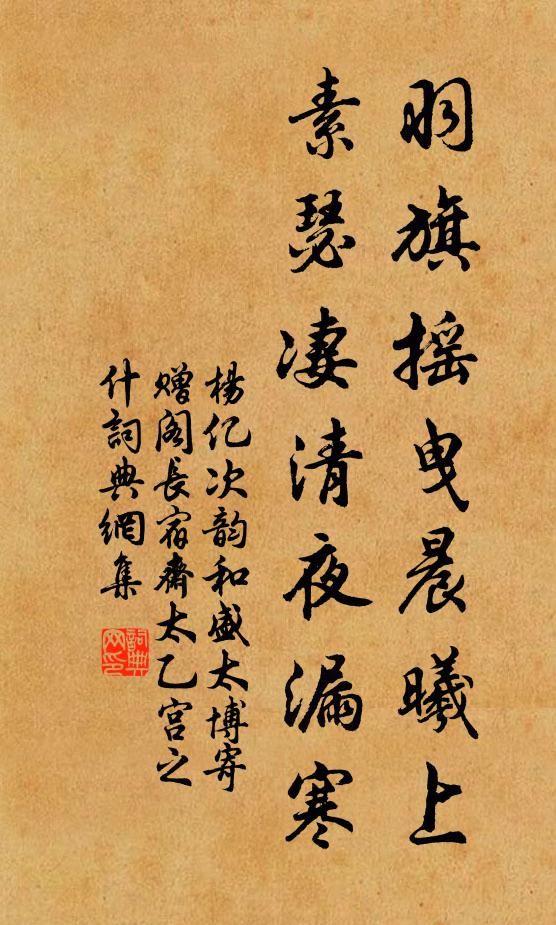 羽旗摇曳晨曦上
素瑟凄清夜漏寒
杨亿次韵和盛太博寄
赠阁长宿齋太乙宫之
什詞典網集
詞典网印